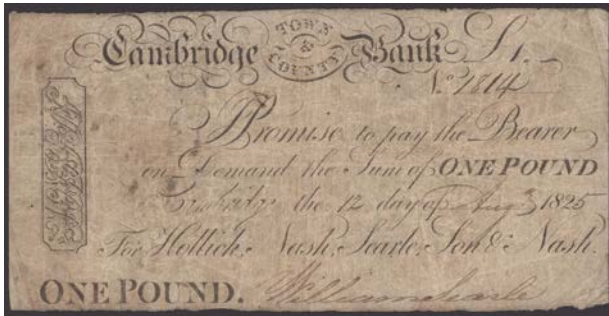 Cambridge TOWN & COUNTY Bank £1.
No. 1814
I Promise to pay the Bearer
on Demand the Sum of ONE POUND
Cambridge the 12 day of Aug 1825
For Hollick, Nash, Searle, Son & Nash.
ONE POUND. William Searle